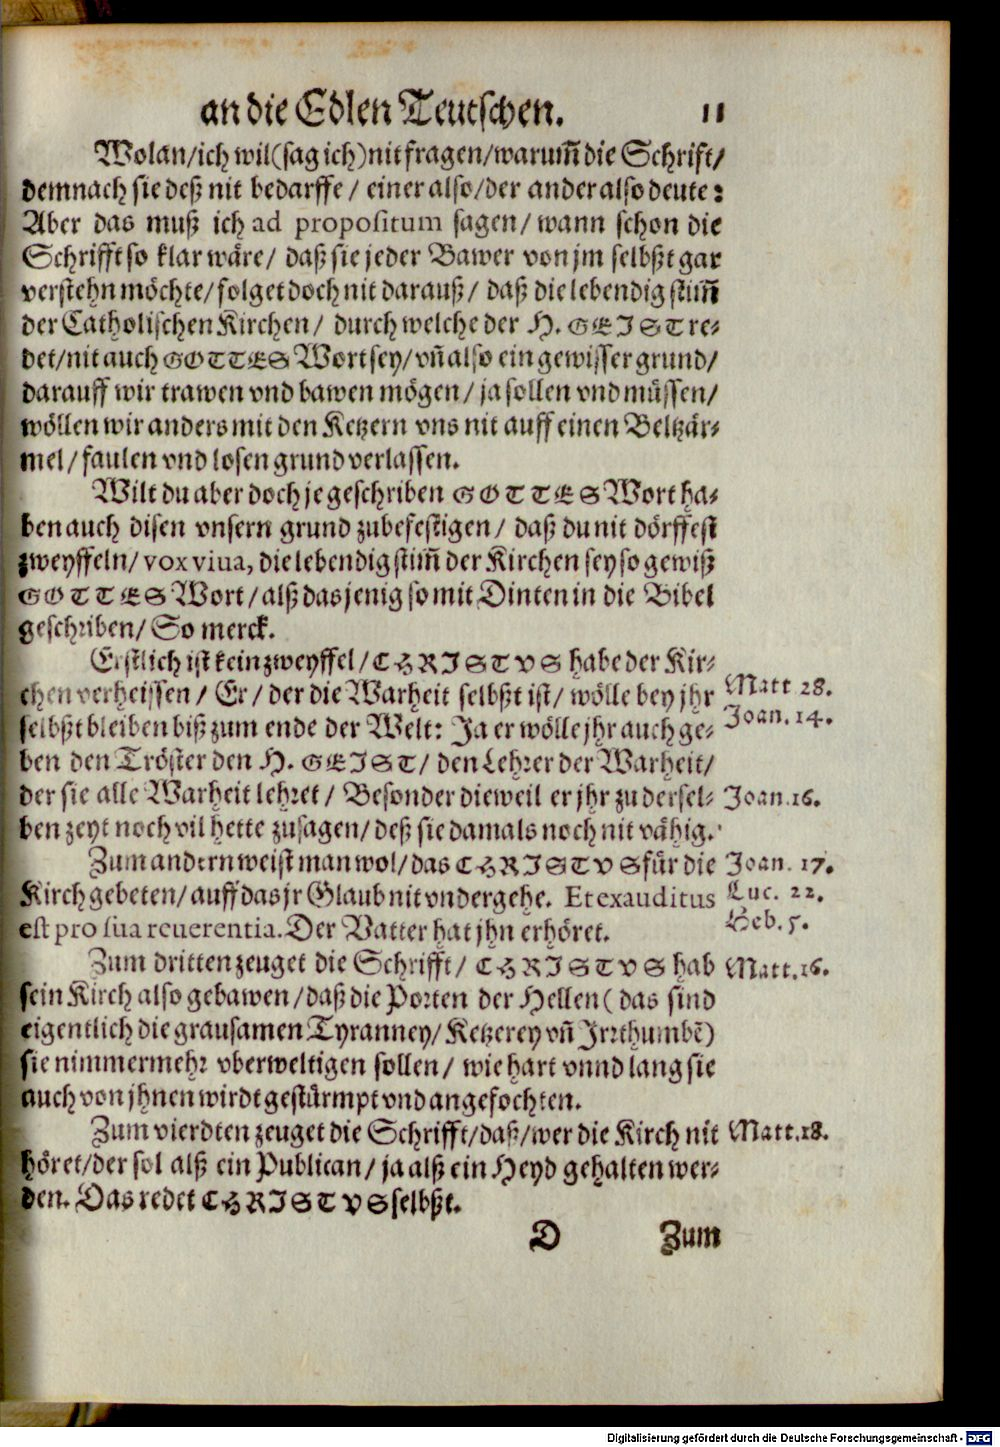 an die Edlen Teutschen. 11
Wolan/ich wil(sag ich)nit fragen/warum̃ die Schrift/
demnach sie deß nit bedarffe/ einer also/der ander also deute:
Aber das muß ich ad propositum sagen/ wann schon die
Schrifft so klar wäre/ daß sie jeder Bawer von jm selbßt gar
verstehn möchte/ folget doch nit darauß/ daß die lebendig stim̃
der Catholischen Kirchen/ durch welche der H. GEIST re-
det/nit auch GOTTES Wort sey/ vñ also ein gewisser grund/
darauff wir trawen vnd bawen mögen/ ja sollen vnd müssen/
wöllen wir anders mit den Ketzern vns nit auff einen Beltzär-
mel/ faulen vnd losen grund verlassen.
Wilt du aber doch je geschriben GOTTES Wort ha-
ben auch disen vnsern grund zubefestigen/ daß du nit dörffest
zweyffeln/ vox viua, die lebendig stim̃ der Kirchen sey so gewiß
GOTTES Wort/ alß das jenig so mit Dinten in die Bibel
geschriben/ So merck.
Erstlich ist kein zweyffel/ CHRISTVS habe der Kir-
chen verheissen/ Er/ der die Warheit selbßt ist/ wölle bey jhr
Matt 28.
selbßt bleiben biß zum ende der Welt: Ja er wölle jhr auch ge-
Joan. 14.
ben den Tröster den H. GEIST/ den Lehrer der Warheit/
der sie alle Warheit lehret/ Besonder dieweil er jhr zu dersel-
Joan. 16.
ben zeyt noch vil hette zusagen/ deß sie damals noch nit vähig.
Zum andern weist man wol/ das CHRISTVS für die
Joan. 17.
Kirch gebeten/ auff das jr Glaub nit vndergehe. Et exauditus
Luc. 22.
est pro sua reuerentia. Der Vatter hat jhn erhöret.
Heb. 5.
Zum dritten zeuget die Schrifft/ CHRISTVS hab
Matt. 16.
sein Kirch also gebawen/ daß die Porten der Hellen( das sind
eigentlich die grausamen Tyranney/ Ketzerey vñ Jrrthumbē)
sie nimmermehr vberweltigen sollen/ wie hart vnnd lang sie
auch von jhnen wirdt gestürmpt vnd angefochten.
Zum vierdten zeuget die Schrifft/ daß/ wer die Kirch nit
Matt. 18.
höret/ der sol alß ein Publican/ ja alß ein Heyd gehalten wer-
den. Das redet CHRISTVS selbßt.
D Zum
Digitalisierung gefördert durch die Deutsche Forschungsgemeinschaft - DFG